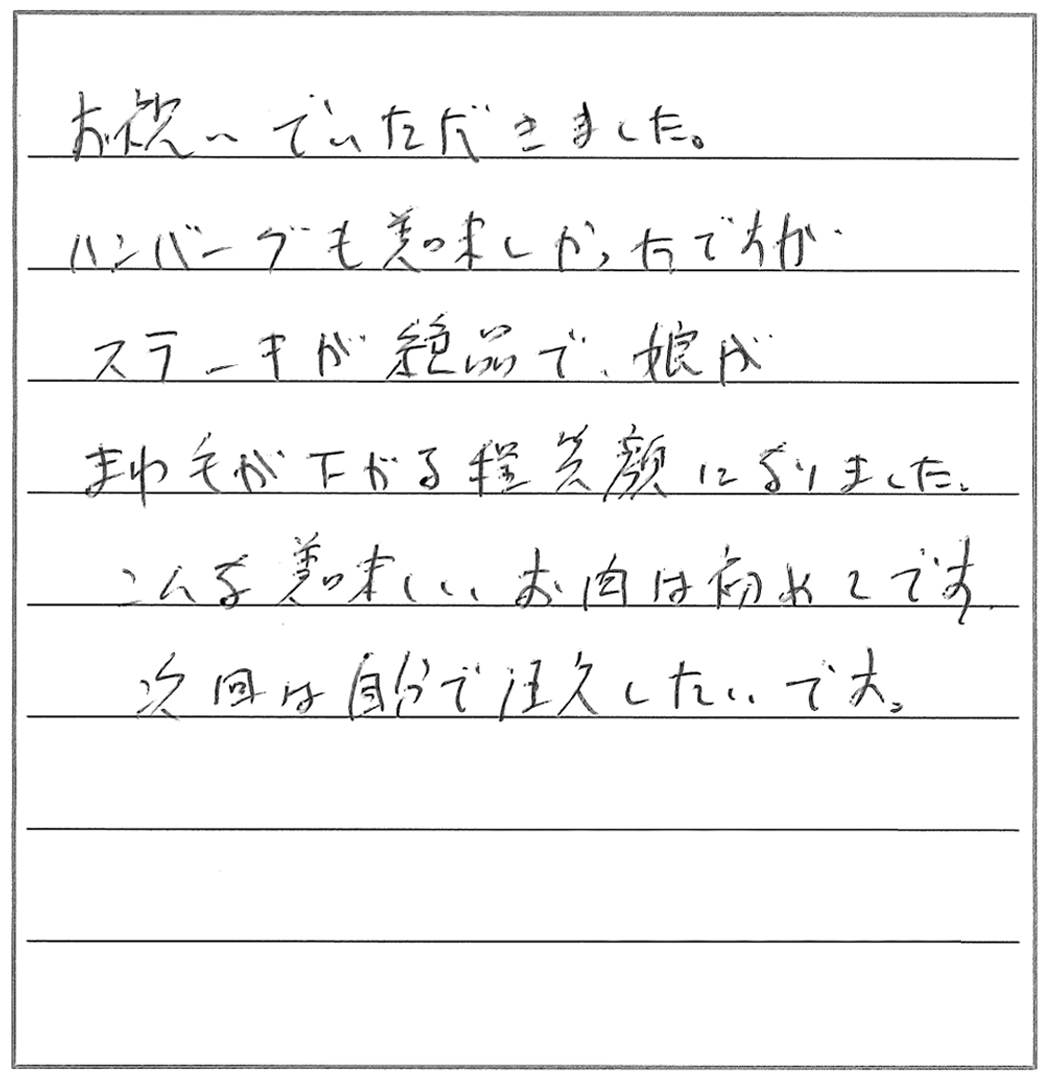 お祝いでいただきました。
ハンバーグも美味しかったですが
ステーキが絶品で、娘が
まゆ毛が下がる程笑顔になりました。
こんな美味しいお肉は初めてです。
次回は自分で注文したいです。